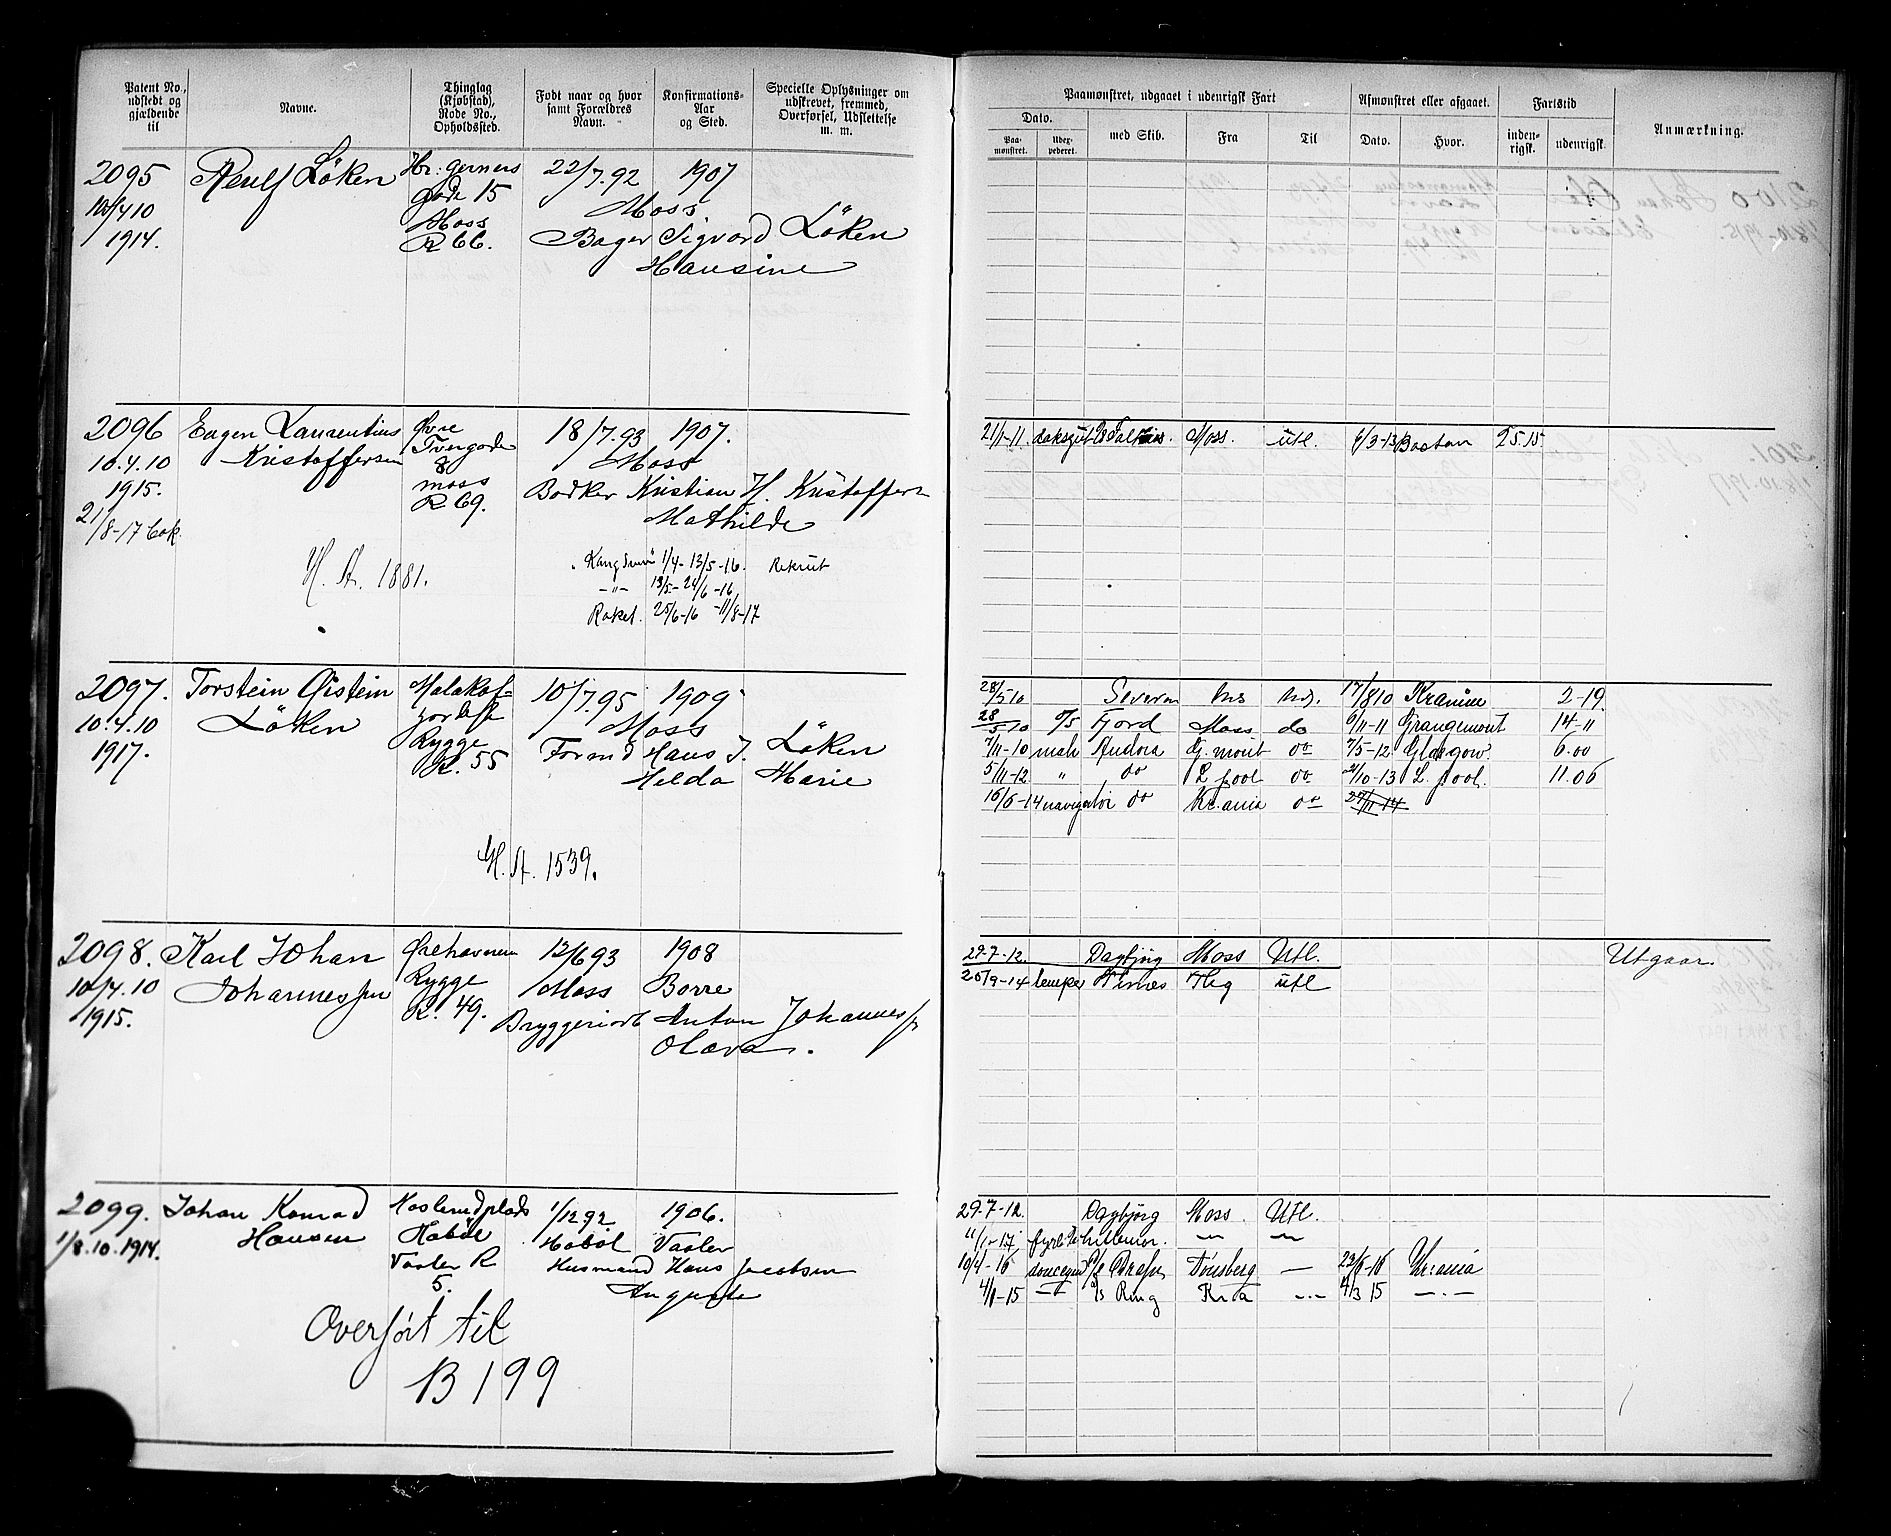 Patent No., udstedt og gjældende til
Navne.
Thinglag (Kjøbstad), Rode No., Opholdssted.
Født naar og hvor samt Forældres Navn.
Konfirmations-Aar og Sted.
Specielle Oplysninger om udskrevet, fremmed, Overførsel, Udslettelse m. m.
Paamønstret, udgaaet i udenrigsk Fart
Afmønstret eller afgaaet.
Fartstid
Anmærkning.
Dato.
med Skib.
Fra
Til
Dato.
Hvor.
inden-rigsk.
udenrigsk.
Paa-mønstret.
2095
Løken
22/7.92
1907
10/4 10
gade 15
Moss
1914.
Moss
R 66.
Bager Sigvard Løken
Hansine
2096
Laurentius
Øvre
18/7.93
1907.
Kristoffersen
Tvergade
Moss
10.4.10
8
1915.
moss
R 69.
Bødker Kristian H. Kristoffersen
Mathilde
21/8-17
H. A. 1881.
1/4 - 13/5 -16.
Rekrut
-"- 13/5 - 24/6 -16
Rakel. 25/6-16 -11/8-17
21/1-11.
Moss.
utl.
6/3-13
Boston
25.15
2097.
Torstein Øistein
Malakof-
10/7.95
1909
10.4.10
Løken
Moss
1917.
Rygge
R. 55
Hans J. Løken
Helda Marie
H. A. 1539.
28/5 10
Severin
17/8 10
2-19
28/5-10
Fjord
Moss
do
6/11-11
Grangemout
14-11
7/11-10
Andora
G. mout
do
7/5-12
Glasgow.
6.00
5/11-12
"
do
L pool
do
L. pool.
11.06
16/6-14
do
Kr.ania
do
2098.
Karl Johan
12/6 93
1908
10/4.10
Johannessen
Rygge
Moss
Borre
1915.
R. 49.
Anton Johannessen
Olava.
29-7-12.
Dagbjørg
Moss
Utl.
Utgaar.
20/9-14
utl
2099.
Johan Konrad
1/12 92
1906.
Hansen
Hobøl
Hobøl
Vaaler
1/8.10.1914.
Vaaler R
5.
Husmand Hans Jacobsen
Auguste
Overført til
B 199
29-7-12.
Dagbjørg
Moss.
Utl.
10/4-16
Tønsberg
—
Kr:ania
4/1-15
Ring
Kr a
4/3 15